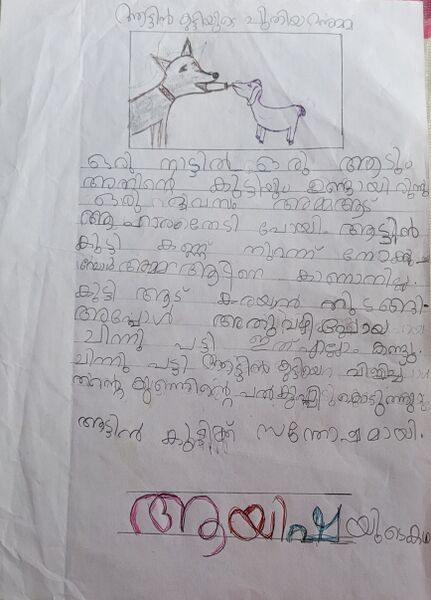 ആട്ടിൻ കുട്ടിയുടെ പുതിയ അമ്മ
ഒരു നാട്ടിൽ ഒരു ആടും
അതിന്റെ കുട്ടിയും ഉണ്ടായിരുന്നു
ഒരു ദിവസം അമ്മആട്
ആഹാരംതേടി പോയി. ആട്ടിൻ
കുട്ടി കണ്ണ് തുറന്ന് നോക്കു-
മ്പോൾ അമ്മ ആടിനെ കാണാനില്ല.
കുട്ടി ആട് കരയാൻ തുടങ്ങി.
അപ്പോൾ അതുവഴി
ചിന്നു പട്ടി ഇത് എല്ലാം കണ്ടു.
ചിന്നു പട്ടി ആട്ടിൻ കുട്ടിയെ വിളിച്ച്
തന്റെ കുഞ്ഞിന്റെ പാൽകുപ്പി കൊടുത്തു.
ആട്ടിൻ കുട്ടിക്ക് സന്തോഷമായി.
ആയിഷയുടെകഥ